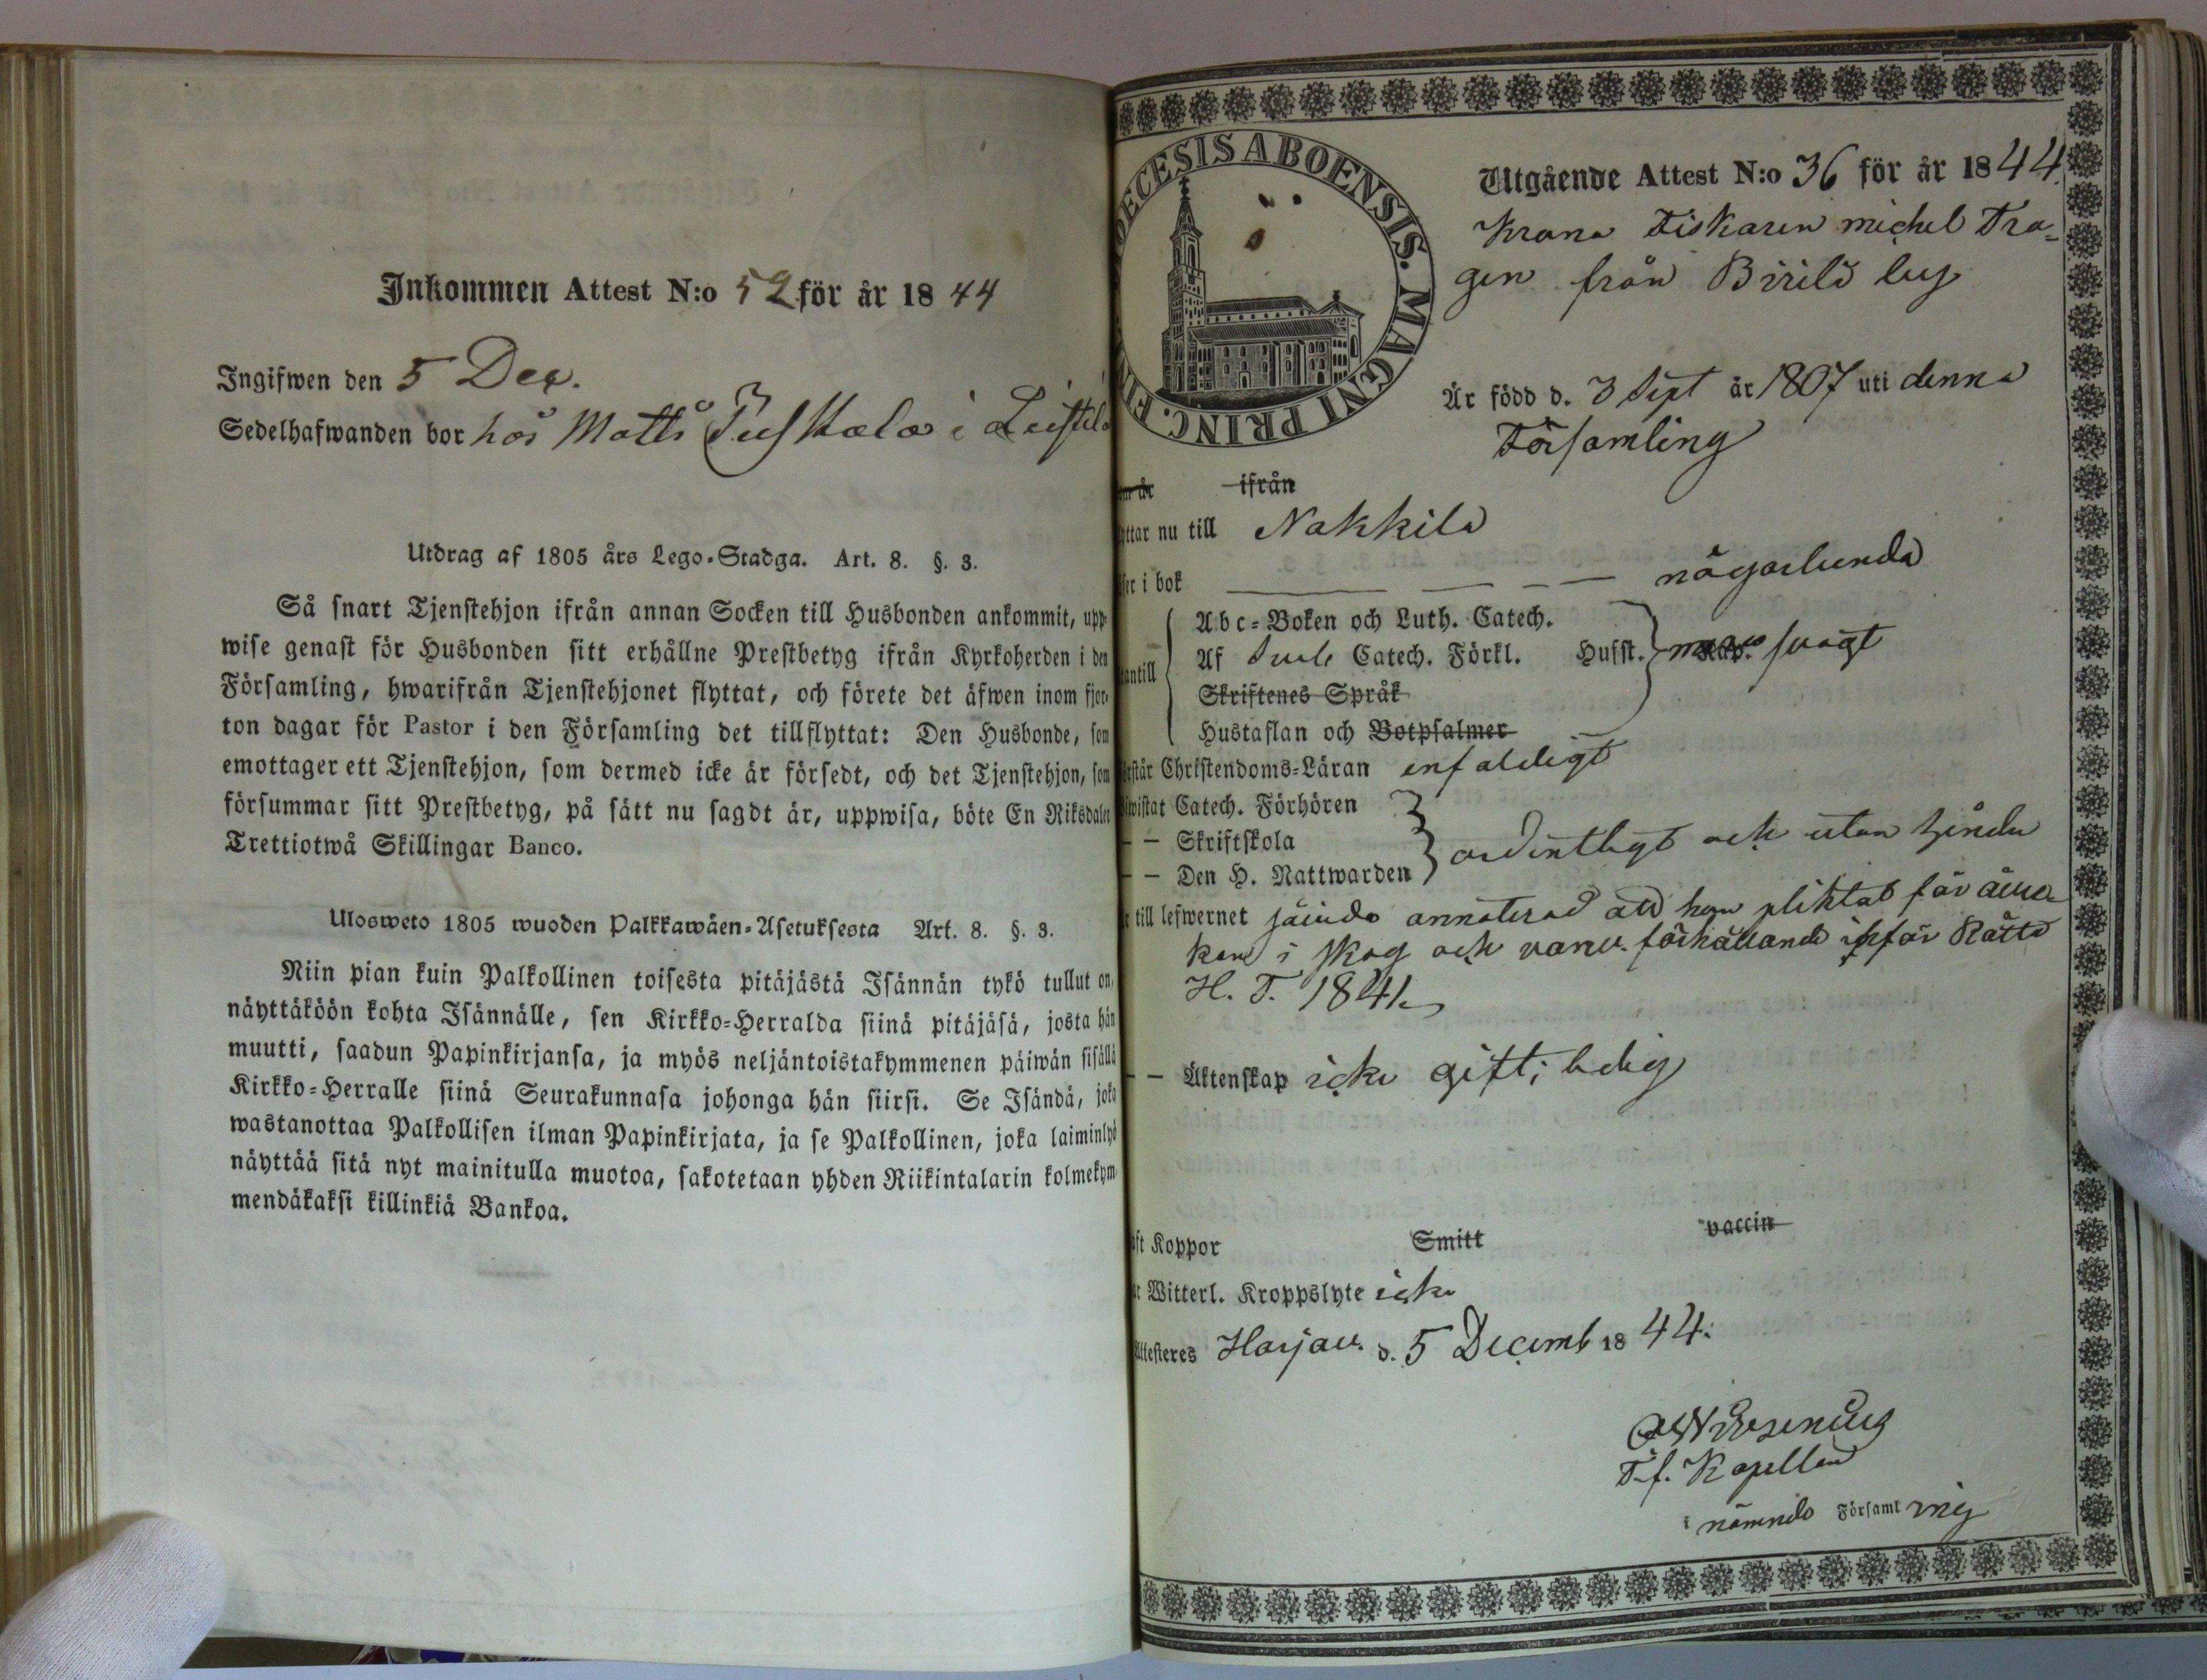 Inkommen Attest N:o 52 för år 1844
Ingifwen den 5 Dec.
Sedelhafwanden bor hos Matts Juskala i Leistila
Utdrag af 1805 års Lego-Stadga. Art. 8. §. 3.
Så snart Tjenstehjon ifrån annan Socken till Husbonden ankommit, upp-
wise genast för Husbonden sitt erhållne Prestbetyg ifrån Kyrkoherden i den
Församling, hwarifrån Tjenstehjonet flyttat, och förete det äfwen inom fjor-
ton dagar för Pastor i den Församling det tillflyttat: Den Husbonde, som
emottager ett Tjenstehjon, som dermed icke är försedt, och det Tjenstehjon, som
försummar sitt Prestbetyg, på sätt nu sagdt är, uppwisa, böte En Riksdaler
Trettiotwå Skillingar Banco.
Ulosweto 1805 wuoden Palkkawäen-Asetuksesta Art. 8. §. 3.
Niin pian kuin Palkollinen toisesta pitäjästä Isännän tykö tullut on,
näyttäköön kohta Isännälle, sen Kirkko-Herralda siinä pitäjäsä, josta hän
muutti, saadun Papinkirjansa, ja myös neljäntoistakymmenen päiwän sisällä
Kirkko-Herralle siinä Seurakunnasa johonga hän siirsi. Se Isändä, joka
wastanottaa Palkollisen ilman Papinkirjata, ja se Palkollinen, joka laiminlyö
näyttää sitä nyt mainitulla muotoa, sakotetaan yhden Riikintalarin kolmekym-
mendäkaksi killinkiä Bankoa.
DIOECESIS ABOENSIS. MAGNI PRINC. FIN
Utgående Attest N:o 36 för år 1844.
Krono Fiskaren Michel Tra-
gen från Birilä by
Är född d. 3 Sept år 1807 uti denna
Församling
om år ifrån
yttar nu till Nakkila
äser i bok — — — — någorlunda
Abc-Boken och Luth. Catech.
Af Catech. Förkl. Husst. svagt
antill
Skriftenes Språk
Hustaflan och Botpsalmer
örstår Christendoms-Läran enfaldigt
iwistat Catech. Förhören
— — Skriftskola
— — Den H. Nattwarden ordentligt och utan hinder
r till lefwernet annoterad att han pliktat för
i skog och förhållande inför Rätta
H. T. 1841
— — Äktenskap icke gift; ledig
aft Koppor Smitt vaccin
ar Witterl. Kroppslyte icke
Attesteres Harjav. d. 5 Decemb 1844.
T.f. Kapellan
i nämnde Församling